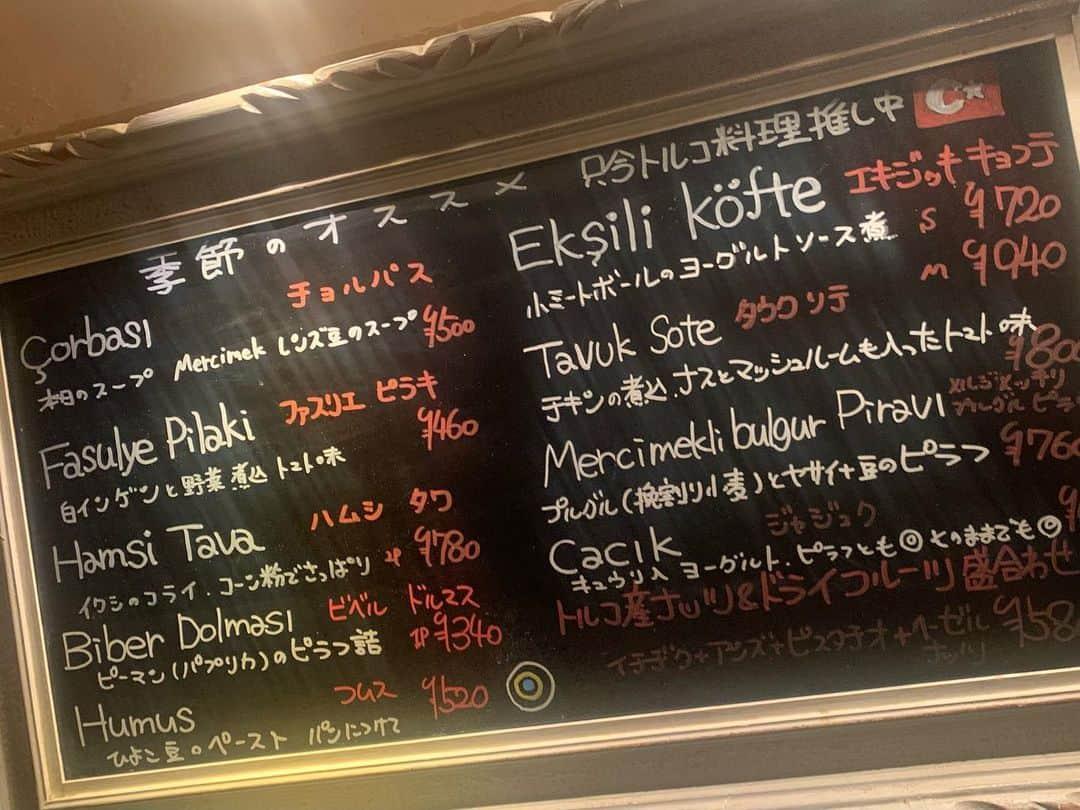 季節のオススメ
チョルバス
Çorbası
本日のスープ Mercimek レンズ豆のスープ ¥500
ファスリエ ピラキ
Fasulye Pilaki ¥460
白インゲンと野菜煮込 トマト味
ハムシ タワ
Hamsi Tava ¥780
イワシのフライ・コーン粉でさっぱり
ビベル ドルマス
Biber Dolması 1P ¥340
ピーマン(パプリカ)のピラフ詰
フムス ¥520
Humus
ひよこ豆のペースト パンにつけて
只今トルコ料理推し中
エキシッキキョフテ
Ekşili köfte S ¥720
小ミートボールのヨーグルトソース煮 M ¥1040
タウクソテ
Tavuk Sote
チキンの煮込、ナスとマッシュルームも入ったトマト味 ¥800
Mercimekli bulgur Piravı
ブルグル(挽割り小麦)とヤサイ+豆のピラフ ¥760
ジャジュク
Cacık
キュウリ入ヨーグルト、ピラフとも◎そのままでも◎
トルコ産ナッツ&ドライフルーツ盛合わせ
イチヂク+アンズ+ピスタチオ+ヘーゼルナッツ ¥58